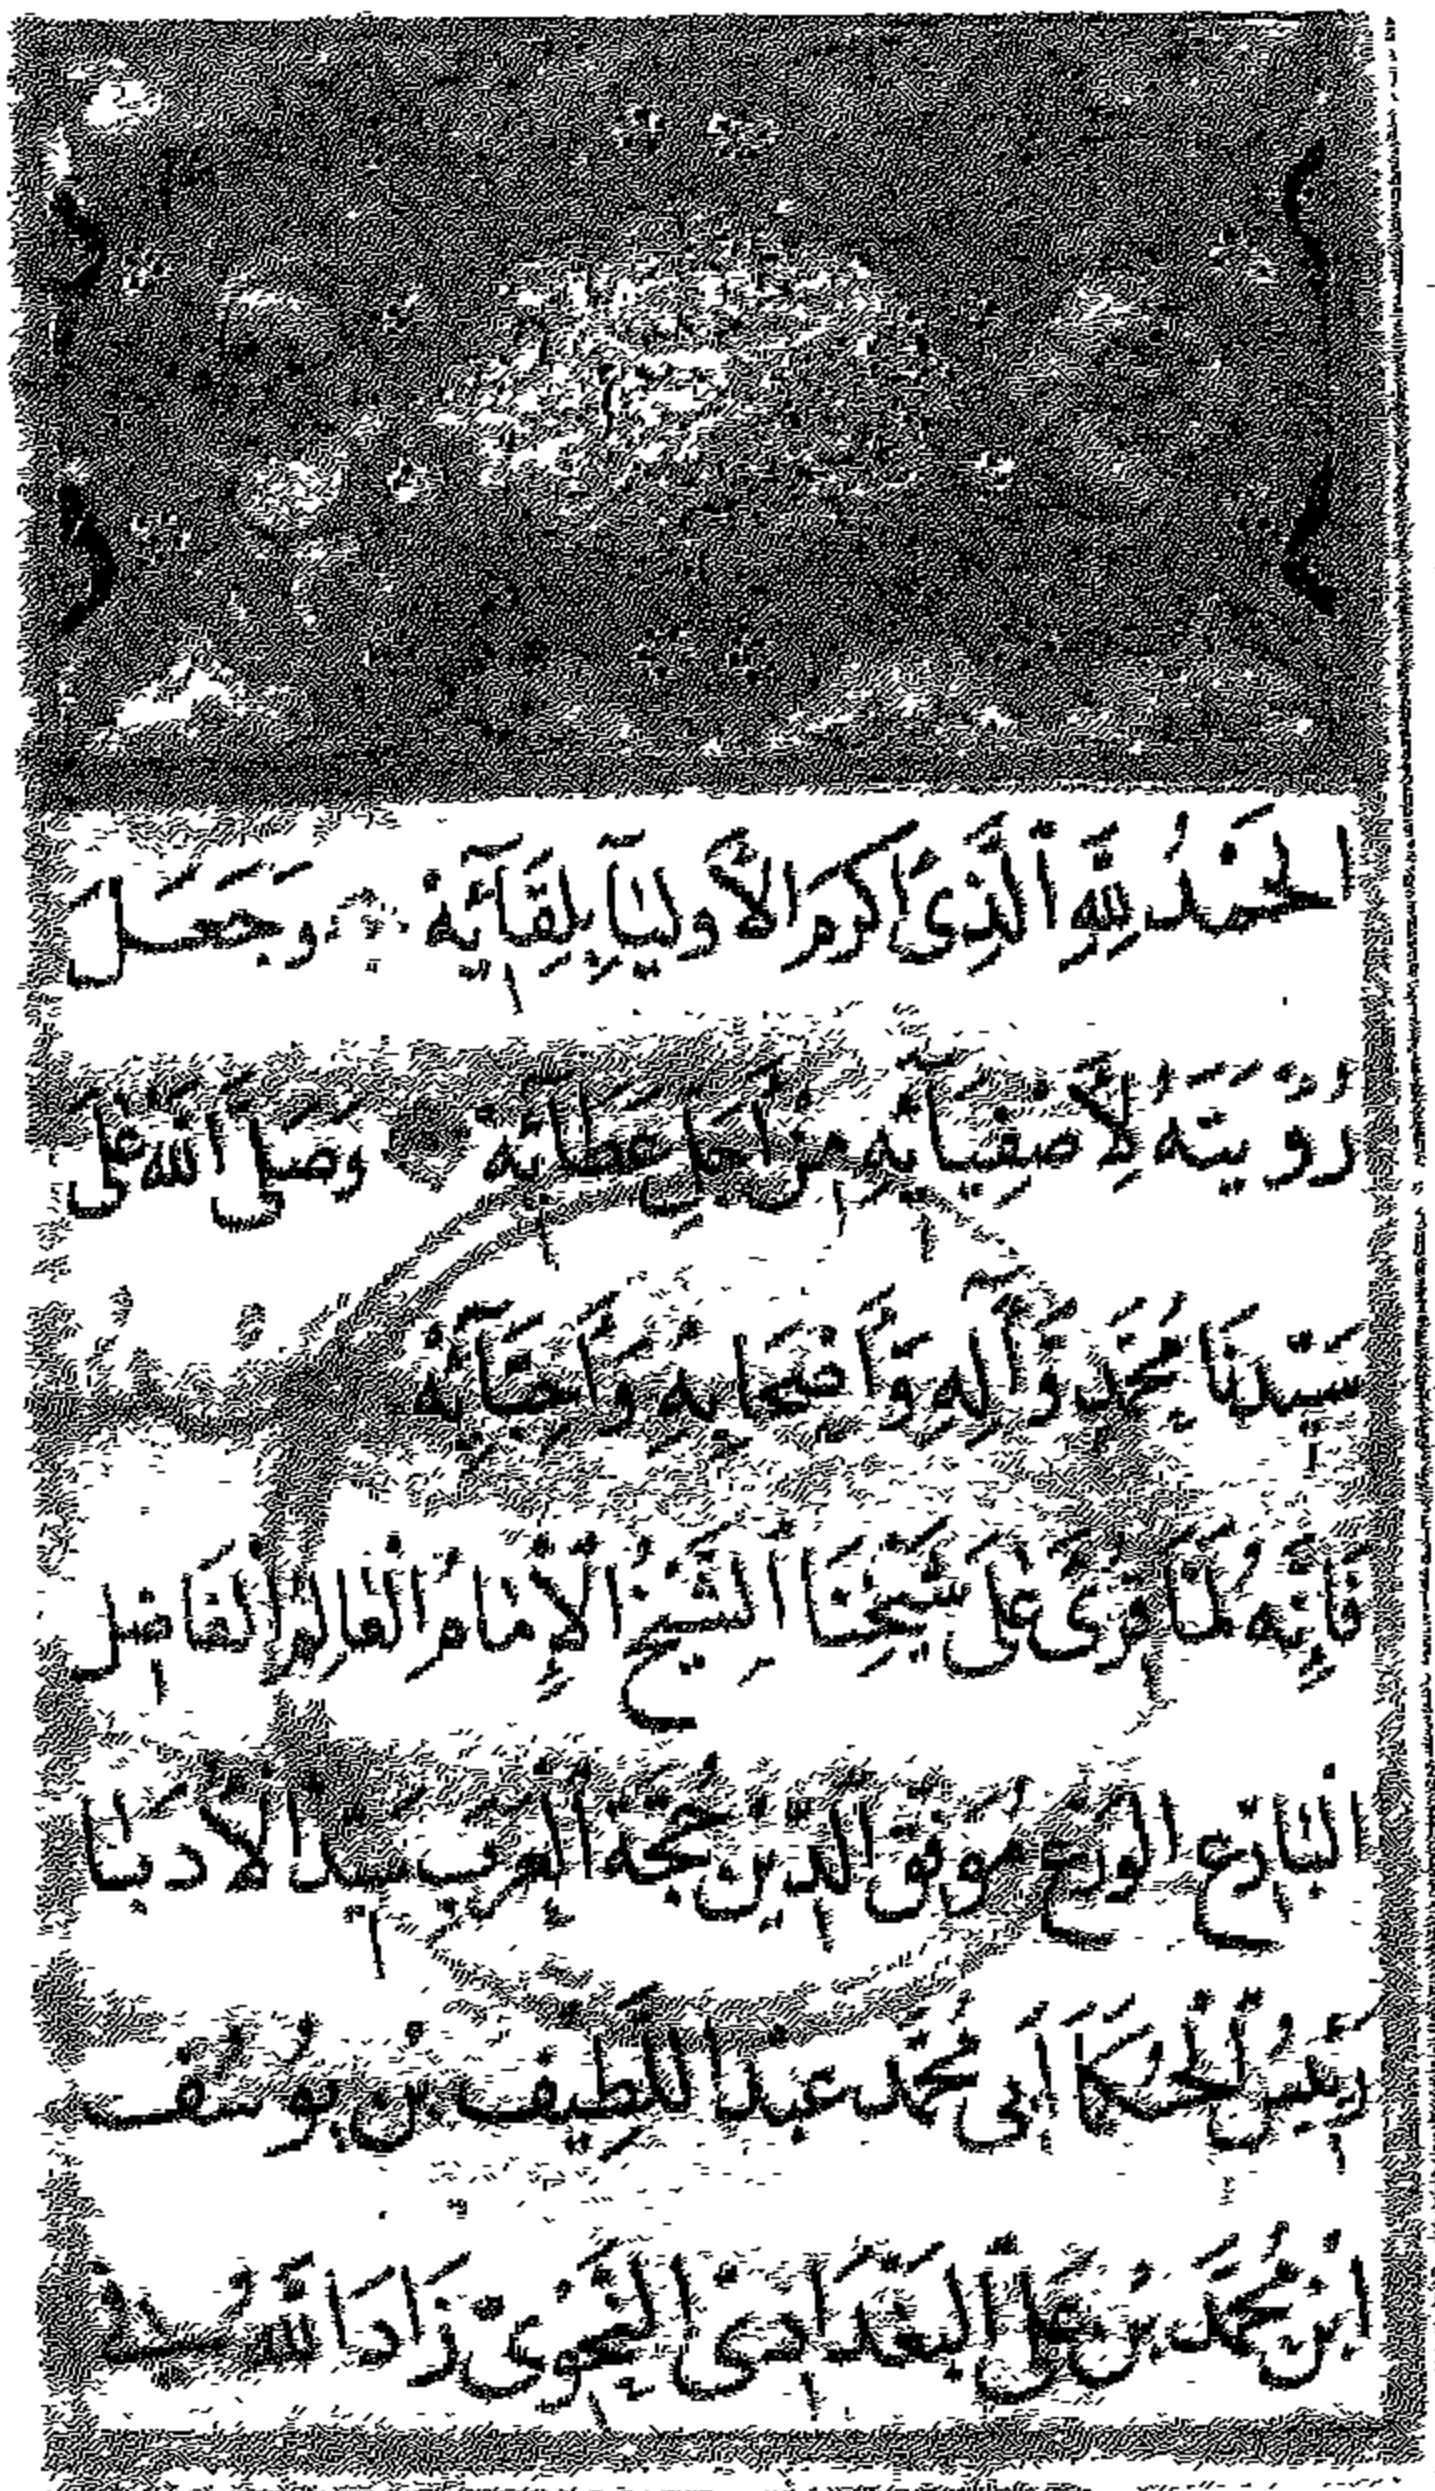 الْحَمْدُ لِلَّهِ الَّذِي أَكْرَمَ الْأَوْلِيَآءَ بِلِقَآئِهِ وَجَعَلَ
رُؤْيَتَهُ لِأَصْفِيَآئِهِ مِنْ أَجَلِّ عَطَآئِهِ وَصَلَّى اللَّهُ عَلَى
سَيِّدِنَا مُحَمَّدٍ وَآلِهِ وَأَصْحَابِهِ
فَإِنَّهُ لَمَّا قُرِئَ عَلَى شَيْخِنَا الشَّيْخِ الْإِمَامِ الْعَالِمِ الْفَاضِلِ
الْبَارِعِ الْوَرِعِ مُوَفَّقِ الدِّينِ حُجَّةِ الْعَرَبِ سَيِّدِ الْأُدَبَا
رَئِيسِ الْحُكَمَآ أَبِي مُحَمَّدٍ عَبْدِ اللَّطِيفِ بْنِ يُوسُفَ
ابْنِ مُحَمَّدِ بْنِ عَلِيٍّ الْبَغْدَادِيِّ النَّحْوِيِّ زَادَ اللَّهُ